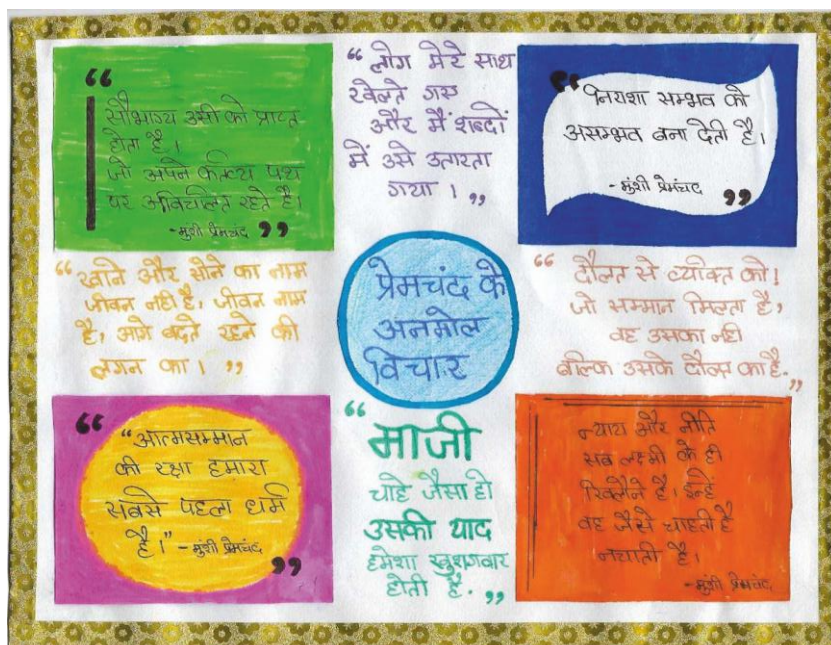 “
सौभाग्य उसी को प्राप्त
होता है।
जो अपने कर्तव्य पथ
पर अविचलित रहते है।
-मुंशी प्रेमचंद ”
“ लोग मेरे साथ
खेलते गए
और मैं शब्दों
में उसे उतारता
गया । ”
“ निराशा सम्भव को
असम्भव बना देती है।
-मुंशी प्रेमचंद ”
“ खाने और सोने का नाम
जीवन नही है, जीवन नाम
है, आगे बढ़ते रहने की
लगन का । ”
प्रेमचंद के
अनमोल
विचार
“ दौलत से व्यक्ति को।
जो सम्मान मिलता है,
वह उसका नही
बल्कि उसके दौलत का है. ”
“ “आत्मसम्मान
की रक्षा हमारा
सबसे पहला धर्म
है।” - मुंशी प्रेमचंद ”
“
माजी
चाहे जैसा हो
उसकी याद
हमेशा खुशगवार
होती है. ”
न्याय और नीति
सब लक्ष्मी के ही
खिलौने है। इन्हें
वह जैसे चाहती है
नचाती है।
-मुंशी प्रेमचंद